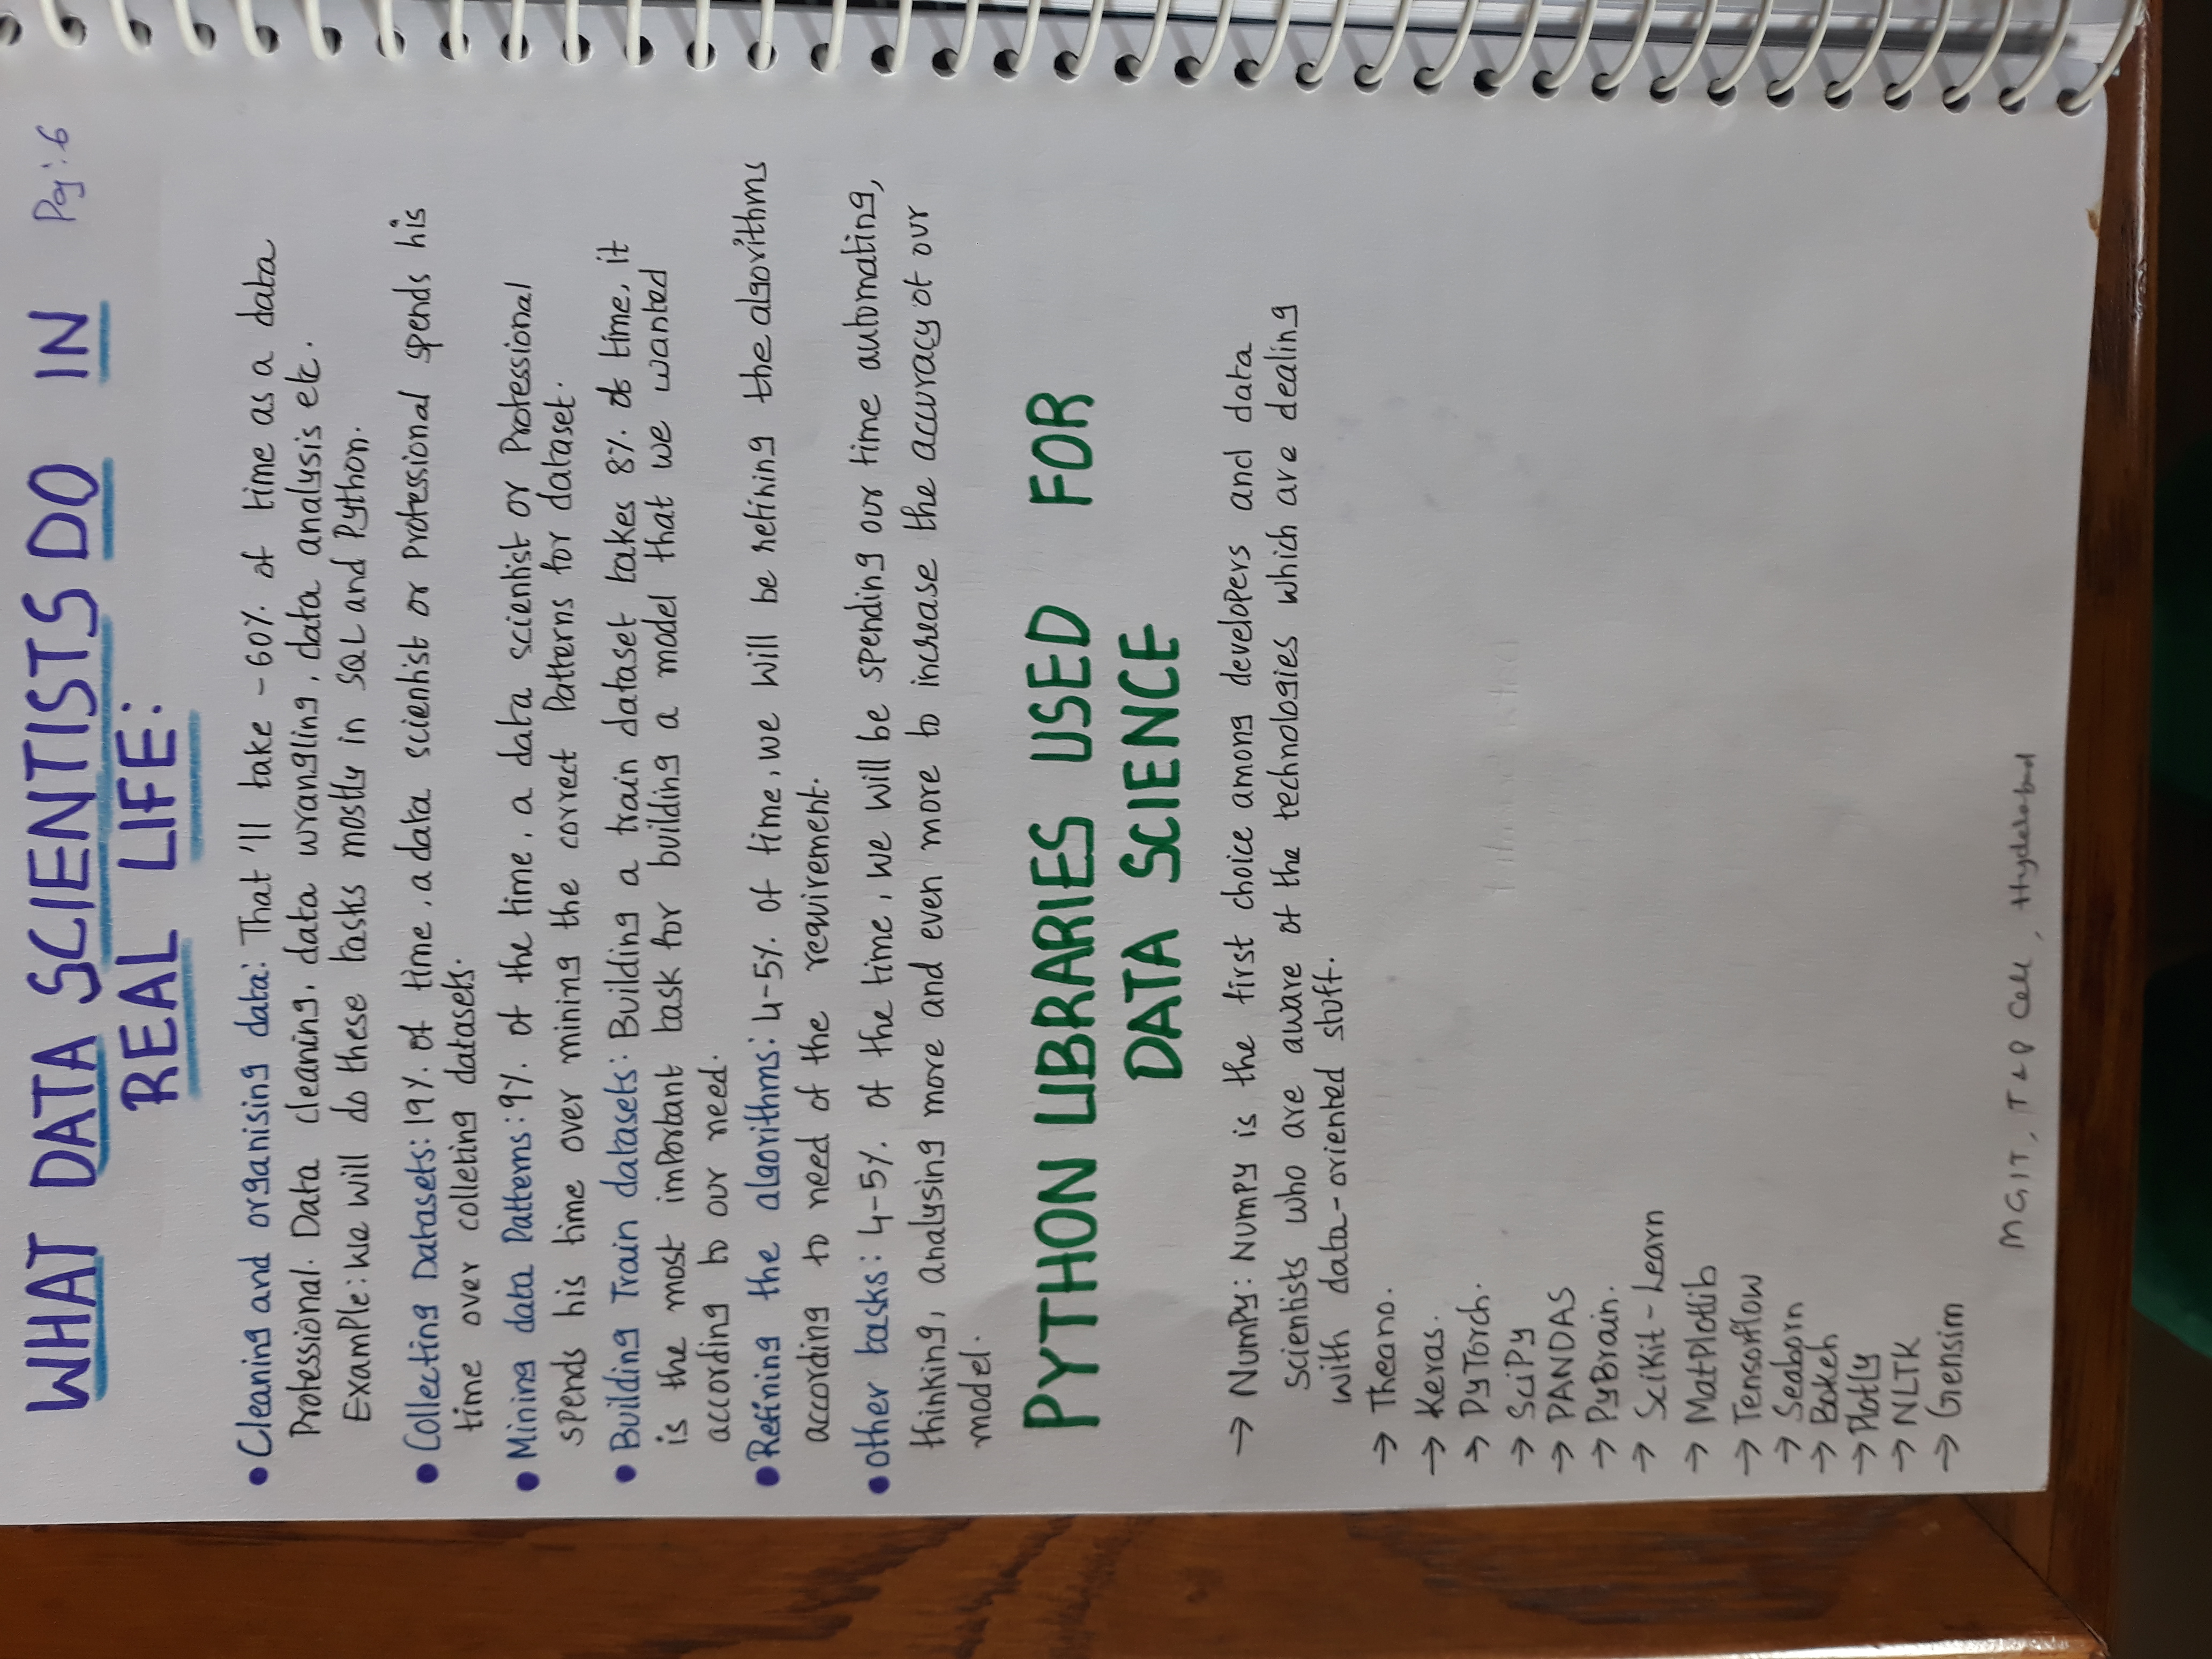 WHAT DATA SCIENTISTS DO IN
Pg: 6
REAL LIFE:
• Cleaning and organising data: That 'll take - 60% of time as a data
Professional. Data cleaning, data wrangling, data analysis etc.
Example: We will do these tasks mostly in SQL and Python.
• Collecting Datasets: 19% of time, a data scientist or Professional spends his
time over colleting datasets.
• Mining data Patterns: 9% of the time, a data scientist or Professional
spends his time over mining the correct Patterns for dataset.
• Building Train datasets: Building a train dataset takes 8% of time, it
is the most important task for building a model that we wanted
according to our need.
• Refining the algorithms: 4-5% of time, we will be refining the algorithms
according to need of the requirement.
• other tasks: 4-5% of the time, we will be spending our time automating,
thinking, analysing more and even more to increase the accuracy of our
model.
PYTHON LIBRARIES USED FOR
DATA SCIENCE
→ NumPy: NumPy is the first choice among developers and data
scientists who are aware of the technologies which are dealing
with data-oriented stuff.
→ Theano.
→ Keras.
→ PyTorch.
→ SciPy
→ PANDAS
→ PyBrain.
→ SciKit-Learn
→ MatPlotlib
→ Tensorflow
→ Seaborn
→ Bokeh
→ Plotly
→ NLTK
→ Gensim
MGIT, T&P Cell, Hyderabad